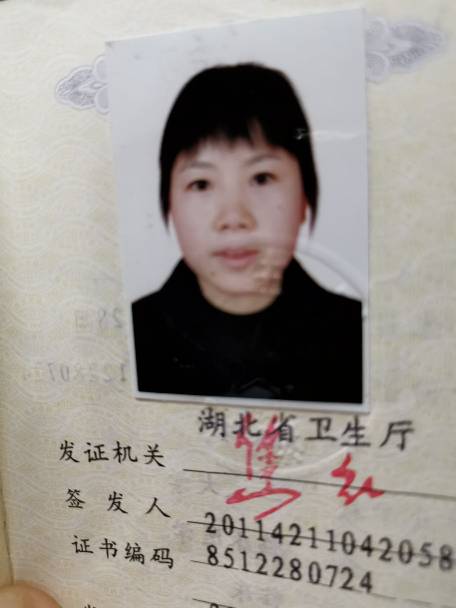 湖北省卫生厅
发证机关
签发人
20114211042058
证书编码
8512280724